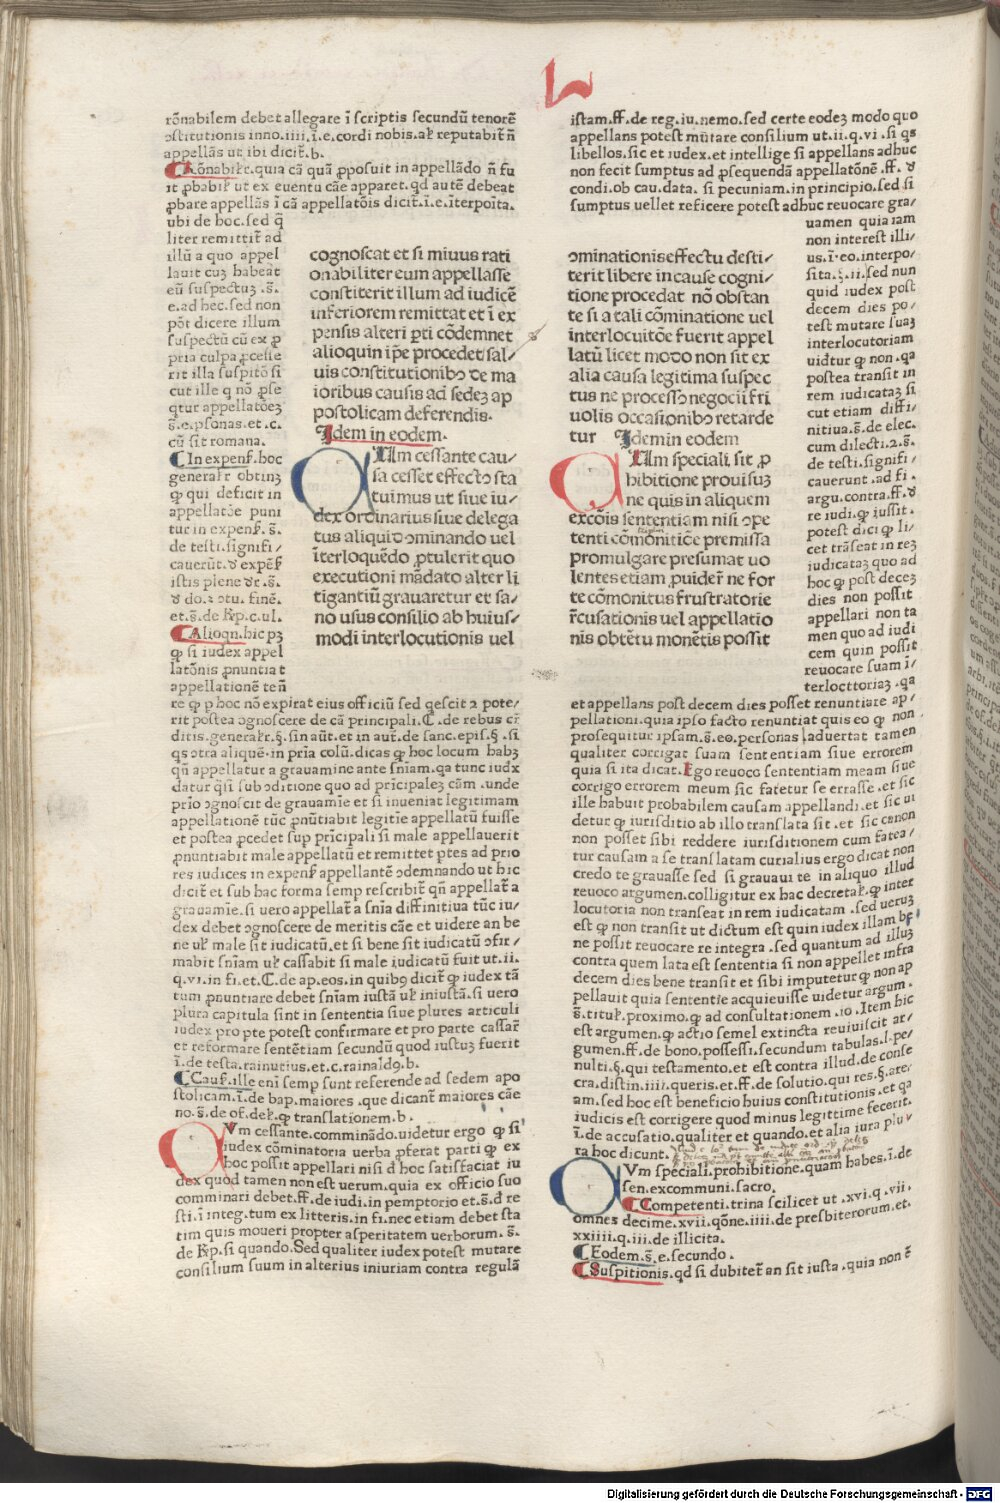 L
rōnabilem debet allegare ī scriptis secundū tenorē
ɔstitutionis inno.iiii.ī.e.cordi nobis.al̄ reputabit̄ n̄
appellās ut ibi dicit̄.b.
quia cā quā ꝓposuit in appellādo n̄ fu
it ꝓbabil̄ ut ex euentu cāe apparet.qd autē debeat
ꝓbare appellās ī cā appellatōis dicit̄.ī.e.īterpoīta.
ubi de hoc.sed q̄
liter remittit̄ ad
illū a quo appel
lauit cuȝ habeāt
eū suspectuȝ .s̄.
e.ad hec.sed non
pōt dicere illum
suspectū cū ex ꝓ
pria culpa ꝓcesse
rit illa suspitō si
cut ille q nō ꝓse
qtur appellatōeȝ
s̄.e.ꝑsonas.et.c.
cū sit romana.
In expens̄.hoc
generalr̄ obtinȝ
ꝙ qui deficit in
appellatōe puni
tur in expens̄. s̄.
de testi.signifi/
cauerūt.
istis plene
finē.
et.s̄.de
Alioqn.hic pȝ
ꝙ si iudex appel
latōnis ꝓnuntiat
appellationē ten̄
re ꝙ ꝑ hoc nō expirat eius officiū sed qescit 2 pote/
rit postea ɔgnoscere de cā principali.C.de rebus
ditis.generalr̄.§.sin aūt.et in aut̄.de sanc.epis.§.si
qs ɔtra aliquē.in pria colū.dicas ꝙ hoc locum habȝ
qn̄ appellatur a grauamine ante sniam.qa tunc iudx
datur qsi sub ɔditione quo ad pricipaleȝ cām.unde
prio ɔgnoscit de grauamie et si inueniat legitimam
appellationē tūc ꝓnūtiabit legitie appellatū fuisse
et postea ꝓcedet sup pricipali si male appellauerit
ꝓnuntiabit male appellatū et remittet ptes ad prio
res iudices in expens̄ appellantē ɔdemnando ut hic
dicit̄ et sub hac forma semp rescribit̄ qn̄ appellat̄ a
grauamie.si uero appellat̄ a snia diffinitiua tūc iu/
dex debet ɔgnoscere de meritis cāe et uidere an be
ne ul̄ male sit iudicatū.et si bene sit iudicatū ɔfir/
mabit sniam ul̄ cassabit si male iudicatū fuit ut.ii.
q.vi.in fi.et.C.de ap.eos.in quibꝰ dicit̄ ꝙ iudex tā
tum ꝓnuntiare debet sniam iustā ul̄ iniustā.si uero
plura capitula sint in sententia siue plures articuli
iudex pro pte potest confirmare et pro parte cassar̄
et reformare sentētiam secundū quod iustuȝ fuerit
ī.de testa.rainutius.et.c.rainaldꝰ.b.
Caus̄.ille eni semp sunt referende ad sedem apo
stolicam.ī.de bap.maiores.que dicant̄ maiores cāe
no.s̄.de of.del̄.ꝙ translationem.b.
QVm cessante.comminādo.uidetur ergo ꝙ si
iudex cōminatoria uerba ꝓferat parti ꝙ ex
hoc possit appellari nisi d hoc satisfaciat iu
dex quod tamen non est uerum.quia ex officio suo
comminari debet.ff.de iudi.in pemptorio et.s̄.d re
sti.ī integ.tum ex litteris.in fi.nec etiam debet sta
tim quis moueri propter asperitatem uerborum.s̄.
de .si quando.Sed qualiter iudex potest mutare
consilium suum in alterius iniuriam contra regulā
cognoscat et si minus rati
onabiliter eum appellasse
constiterit illum ad iudicē
inferiorem remittat et ī ex
pensis alteri pti cōdemnet
alioquin ipe procedet sal/
uis constitutionibꝰ de ma
ioribus causis ad sedeȝ ap
postolicam deferendis.
Idem in eodem.
QUm cessante cau/
sa cesset effectꝰ sta
tuimus ut siue iu/
dex ordinarius siue delega
tus aliquid ɔminando uel
īterloquēdo ꝓtulerit quo
executioni mādato alter li
tigantiū grauaretur et sa/
no usus consilio ab huius/
modi interlocutionis uel
ɔminationis effectu desti/
terit libere in cause cogni/
tione procedat nō obstan
te si a tali cōminatione uel
īnterlocutiōe fuerit appel
latū licet modo non sit ex
alia causa legitima suspec
tus ne processꝰ negocii fri
uolis occasionibꝰ retarde
tur Idem in eodem
QUm speciali sit ꝓ
hibitione prouisuȝ
ne quis in aliquem
excōis sententiam nisi ɔpe
tenti cōmonitiōe premissa
promulgare presumat uo
lentes etiam ꝓuider̄ ne for
te cōmonitus frustratorie
r̄cusationis uel appellatio
nis obtētu monētis possit
istam.ff.de reg.iu.nemo.sed certe eodeȝ modo quo
appellans potest mūtare consilium ut.ii.q.vi.si qs
libellos.sic et iudex.et intellige si appellans adhuc
non fecit sumptus ad ꝓsequendā appellatōnē.ff.
condi.ob cau.data.si pecuniam.in principio.sed si
sumptus uellet reficere potest adhuc reuocare gra/
uamen quia iam
non interest illi/
us.ī.eo.interpo/
sita.§.ii.sed nun
quid iudex post
decem dies po/
test mutare suaȝ
interlocutoriam
uidtur ꝙ non.qa
postea transit in
rem iudicataȝ si
cut etiam diffi/
nitiua.s̄.de elec.
cum dilecti.2.s̄.
de testi.signifi/
cauerunt.ad fi.
argu.contra.ff.
re iudi.ꝙ iussit.
potest dici ꝙ li/
cet trāseat in reȝ
iudicataȝ quo ad
hoc ꝙ post deceȝ
dies non possit
appellari non ta
men quo ad iudi
cem quin possit
reuocare suam ī/
terlocttoriaȝ.qa
et appellans post decem dies posset renuntiare ap/
pellationi.quia ipso facto renuntiat quis eo ꝙ non
prosequitur ipsam.s̄.eo.personas aduertat tamen
qualiter corrigat suam sententiam siue errorem
quia si ita dicat.Ego reuoco sententiam meam siue
corrigo errorem meum sic fatetur se errasse.et sic
ille habuit probabilem causam appellandi.et sic ui
detur ꝙ iurisditio ab illo translata sit.et sic canon
non posset sibi reddere iurisditionem cum fatea/
tur causam a se translatam curialius ergo dicat non
credo te grauasse sed si grauaui te in aliquo illud
reuoco argumen.colligitur ex hac decretal̄.ꝙ inter
locutoria non transeat in rem iudicatam.sed ueruȝ
est ꝙ non transit ut dictum est quin iudex illam be
ne possit reuocare re integra.sed quantum ad illuȝ
contra quem lata est sententia si non appellet infra
decem dies bene transit et sibi imputetur ꝙ non ap
pellauit quia sententie acquieuisse uidetur argum.
s̄.titul̄.proximo.ꝙ ad consultationem.io.Item hic
est argumen.ꝙ actio semel extincta reuiuiscit ar/
gumen.ff.de bono.possessi.secundum tabulas.l.pe/
nulti.§.qui testamento.et est contra illud.de conse
cra.distin.iiii.queris.et.ff.de solutio.qui res.§.are/
am.sed hoc est beneficio huius constitutionis.et qa
iudicis est corrigere quod minus legittime fecerit.
ī.de accusatio.qualiter et quando.et alia iura plu/
ra hoc dicunt.
QVm speciali.prohibitione.quam habes.ī.de
sen.excommuni.sacro.
Competenti.trina scilicet ut.xvi.q.vii.
omnes decime.xvii.qōne.iiii.de presbiterorum.et.
xxiiii.q.iii.de illicita.
Eodem.s̄.e.secundo.
Suspitionis.qd si dubitet̄ an sit iusta.quia non ē
Digitalisierung gefördert durch die Deutsche Forschungsgemeinschaft - DFG